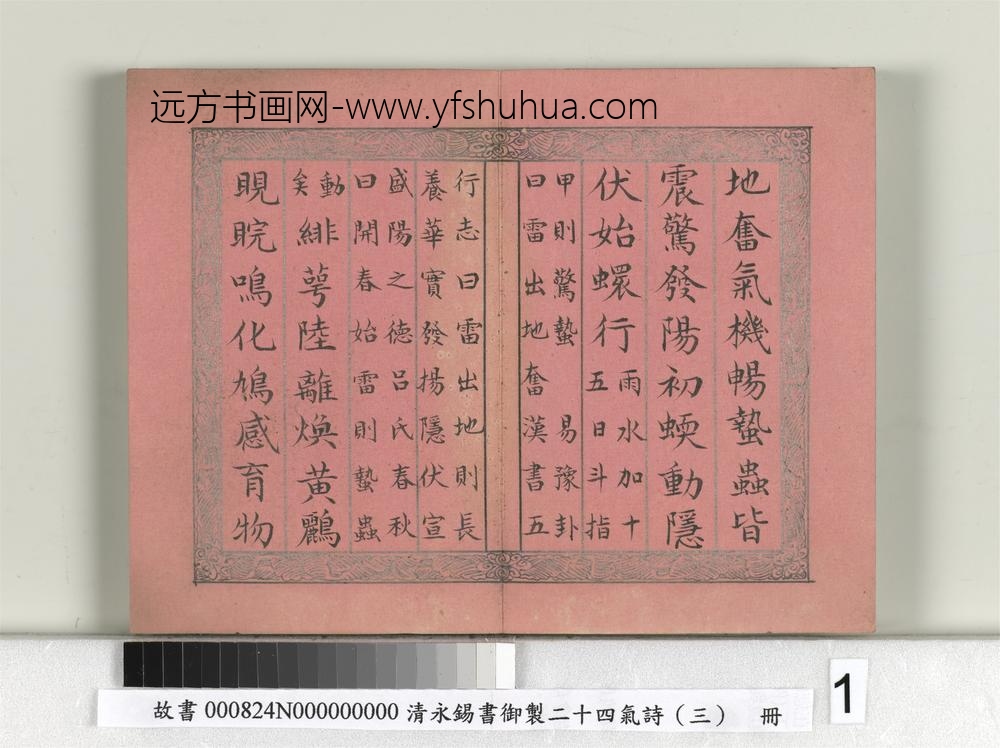 远方书画网-www.yfshuhua.com
地奮氣機暢蟄蟲皆
震驚發陽初蝡動隱
伏始蠉行雨水加十
五日斗指
甲則驚蟄易豫卦
曰雷出地奮漢書五
行志曰雷出地則長
養華實發揚隱伏宣
盛陽之德呂氏春秋
曰開春始雷則蟄蟲
動
矣緋萼陸離煥黃鸝
睍睆鳴化鳩感育物
故書000824N000000000 清永錫書御製二十四氣詩（三） 冊
1